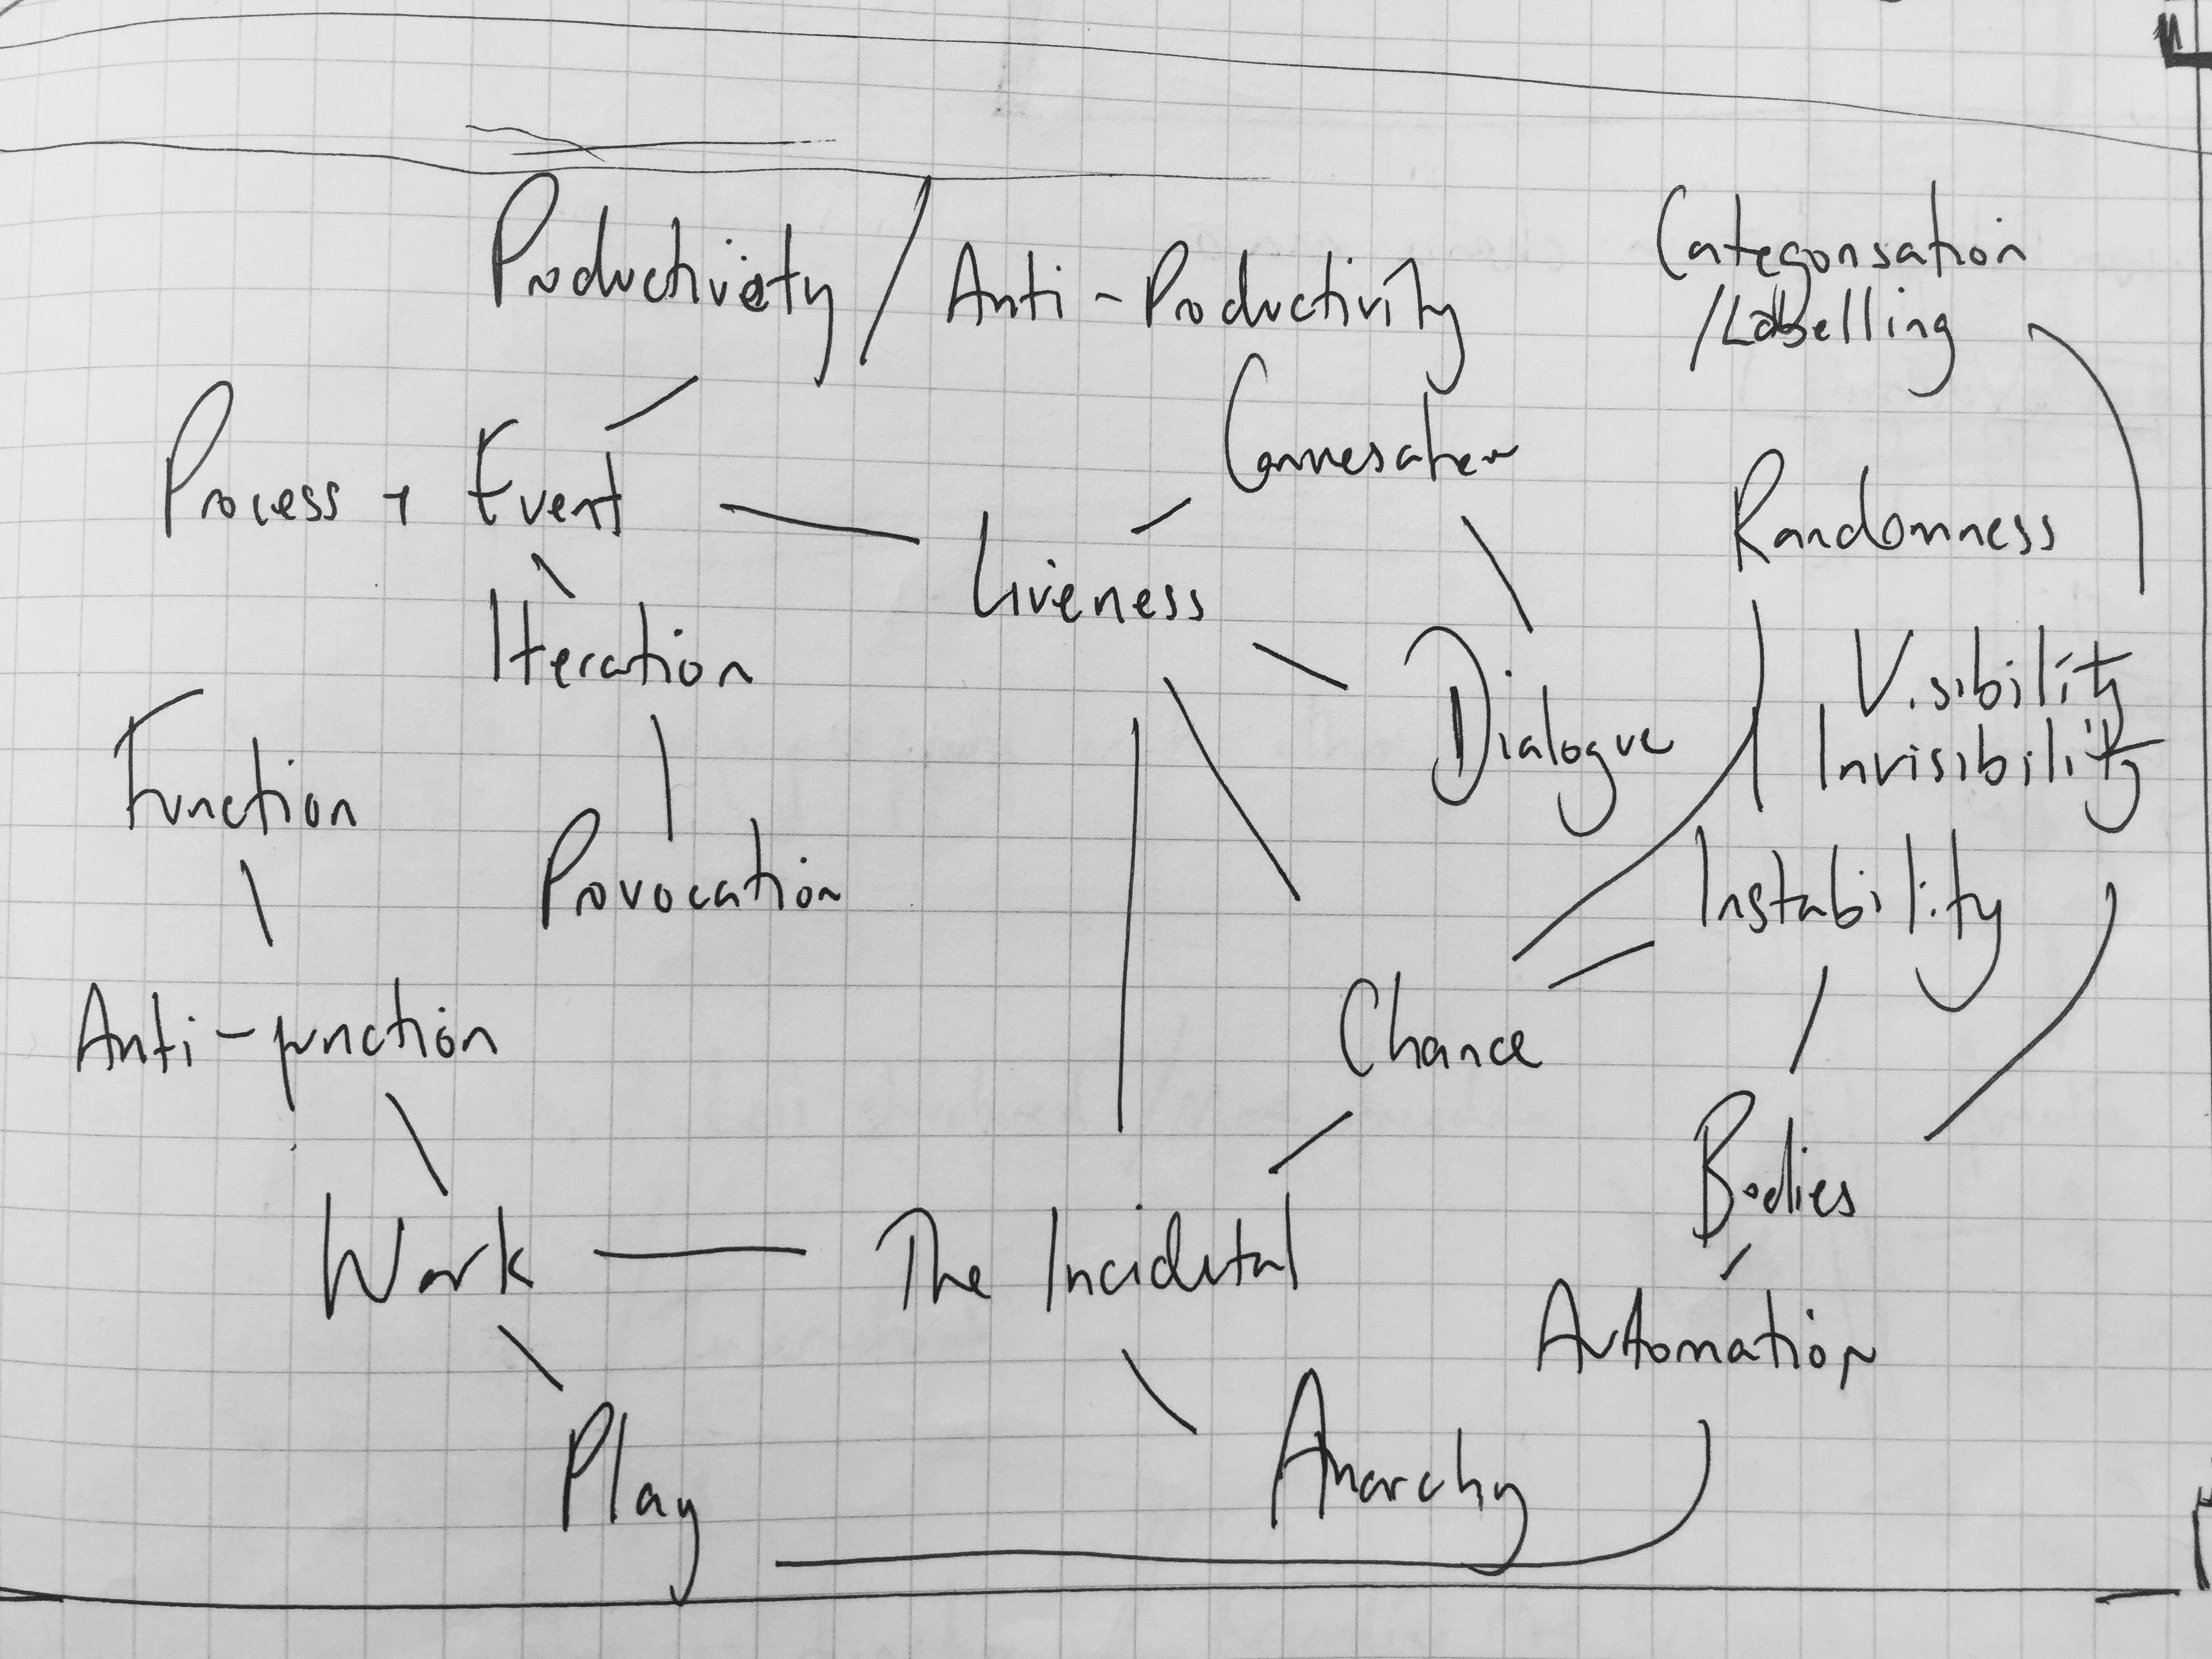 Productivity / Anti-Productivity
Categorisation
/Labelling
Process + Event
Conversation
Randomness
Liveness
Iteration
Visibility
Invisibility
Dialogue
Function
Provocation
Instability
Anti-function
Chance
Bodies
Work
The Incidental
Automation
Play
Anarchy